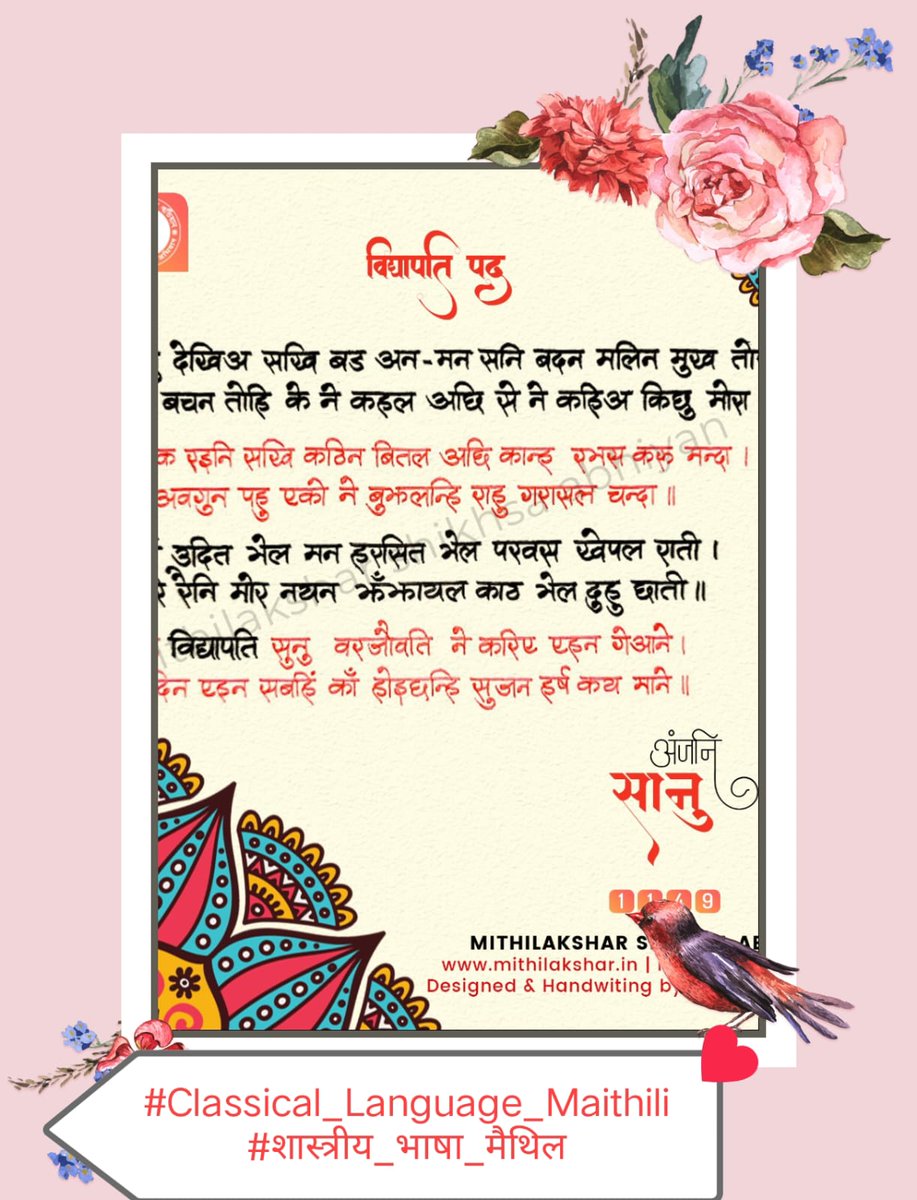 विद्यापति पद
देखिअ सखि बड अन-मन सनि बदन मलिन मुख
बचन तोहि के ने कहल अछि से ने कहिअ किछु मोरा
रइनि सखि कठिन बितल अछि कान्ह रभस करु मन्दा।
अवगुन पहु एको ने बुझलन्हि राहु गरासल चन्दा॥
उदित भेल मन हरसित भेल परवस खेपल राती।
रैनि मोर नयन झँझायल काठ भेल दुहु छाती॥
विद्यापति सुनु वरजौवति ने करिए एहन गेआने।
एहन सबहिं काँ होइछन्हि सुजन हर्ष कय माने॥
अंजनि
सानु
1149
mithilakshar shikhsa abhiyan
MITHILAKSHAR
www.mithilakshar.in |
Designed & Handwiting by
#Classical_Language_Maithili
#शास्त्रीय_भाषा_मैथिल